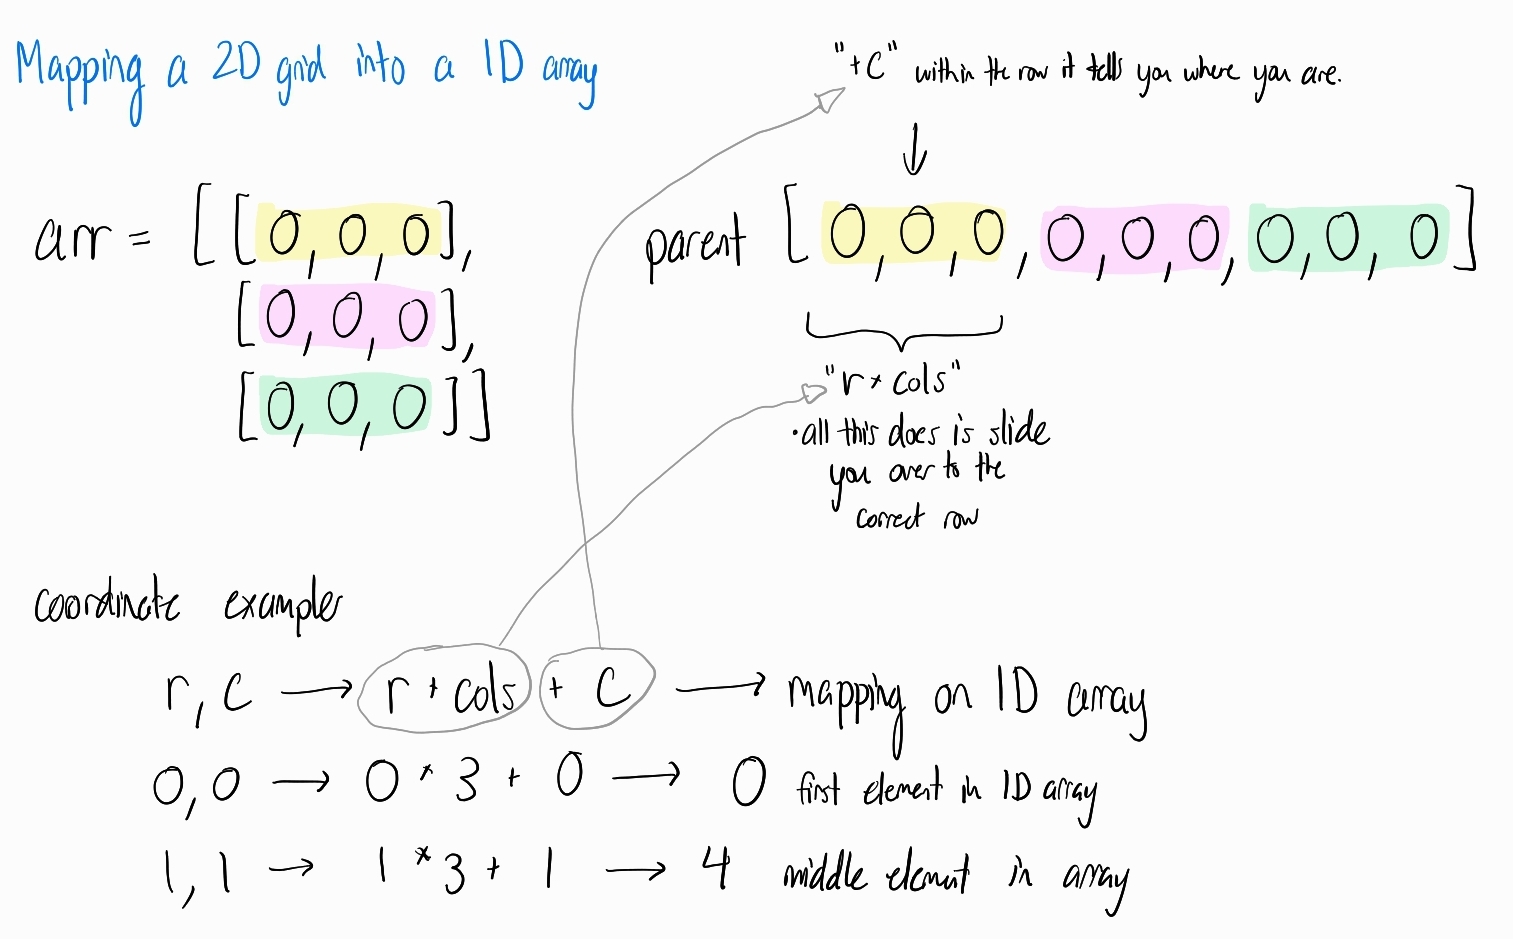 Mapping a 2D grid into a 1D array
"+C" within the row it tells you where you are.
arr = [[0,0,0],
[0,0,0],
[0,0,0]]
parent [0,0,0,0,0,0,0,0,0]
"r * cols"
• all this does is slide
you over to the
correct row
coordinate examples
r, c → r * cols + c → mapping on 1D array
0,0 → 0 * 3 + 0 → 0 first element in 1D array
1,1 → 1 * 3 + 1 → 4 middle element in array